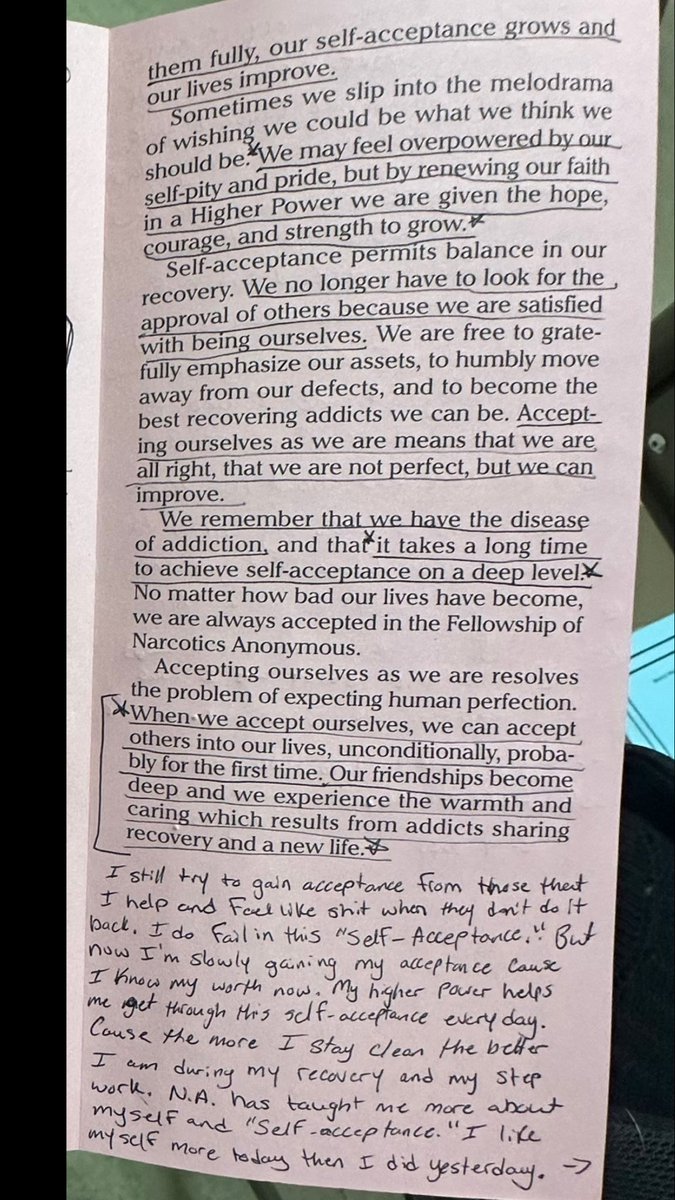 them fully, our self-acceptance grows and
our lives improve.
Sometimes we slip into the melodrama
of wishing we could be what we think we
should be. We may feel overpowered by our
self-pity and pride, but by renewing our faith
in a Higher Power we are given the hope,
courage, and strength to grow.
Self-acceptance permits balance in our
recovery. We no longer have to look for the
approval of others because we are satisfied
with being ourselves. We are free to grate-
fully emphasize our assets, to humbly move
away from our defects, and to become the
best recovering addicts we can be. Accept-
ing ourselves as we are means that we are
all right, that we are not perfect, but we can
improve.
We remember that we have the disease
of addiction, and that it takes a long time
to achieve self-acceptance on a deep level.
No matter how bad our lives have become,
we are always accepted in the Fellowship of
Narcotics Anonymous.
Accepting ourselves as we are resolves
the problem of expecting human perfection.
When we accept ourselves, we can accept
others into our lives, unconditionally, proba-
bly for the first time. Our friendships become
deep and we experience the warmth and
caring which results from addicts sharing
recovery and a new life.
I still try to gain acceptance from those that
I help and feel like shit when they don't do it
back. I do fail in this "Self-Acceptance." But
now I'm slowly gaining my acceptance cause
I know my worth now. My higher power helps
me get through this self-acceptance everyday.
Cause the more I stay clean the better
I am during my recovery and my step
work. N.A. has taught me more about
myself and "Self-acceptance." I like
myself more today then I did yesterday. →